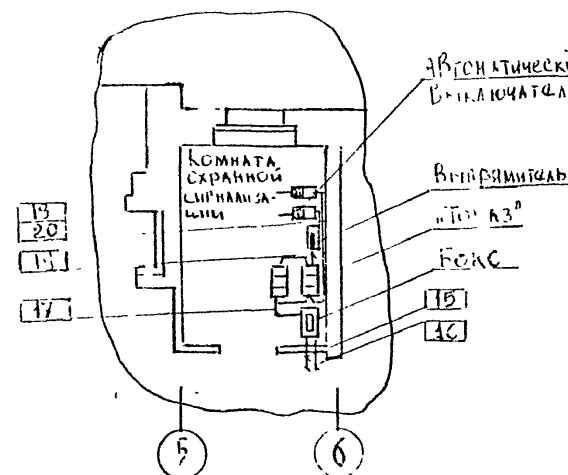 Автоматически
Выключател
Комната
охранной
сигнализа-
ции
Выпрямитель
„Топаз"
Бокс
13
20
17
15
16
5
6